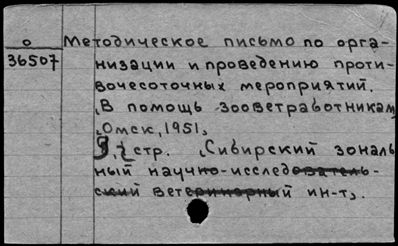 о Методическое письмо по орга-
36507 низации и проведению проти-
вочесоточных мероприятий.
(В помощь зооветработникам)
Омск, 1951,
стр. (Сибирский зональ
ный научно-исследователь-
ский ветеринарный ин-т).